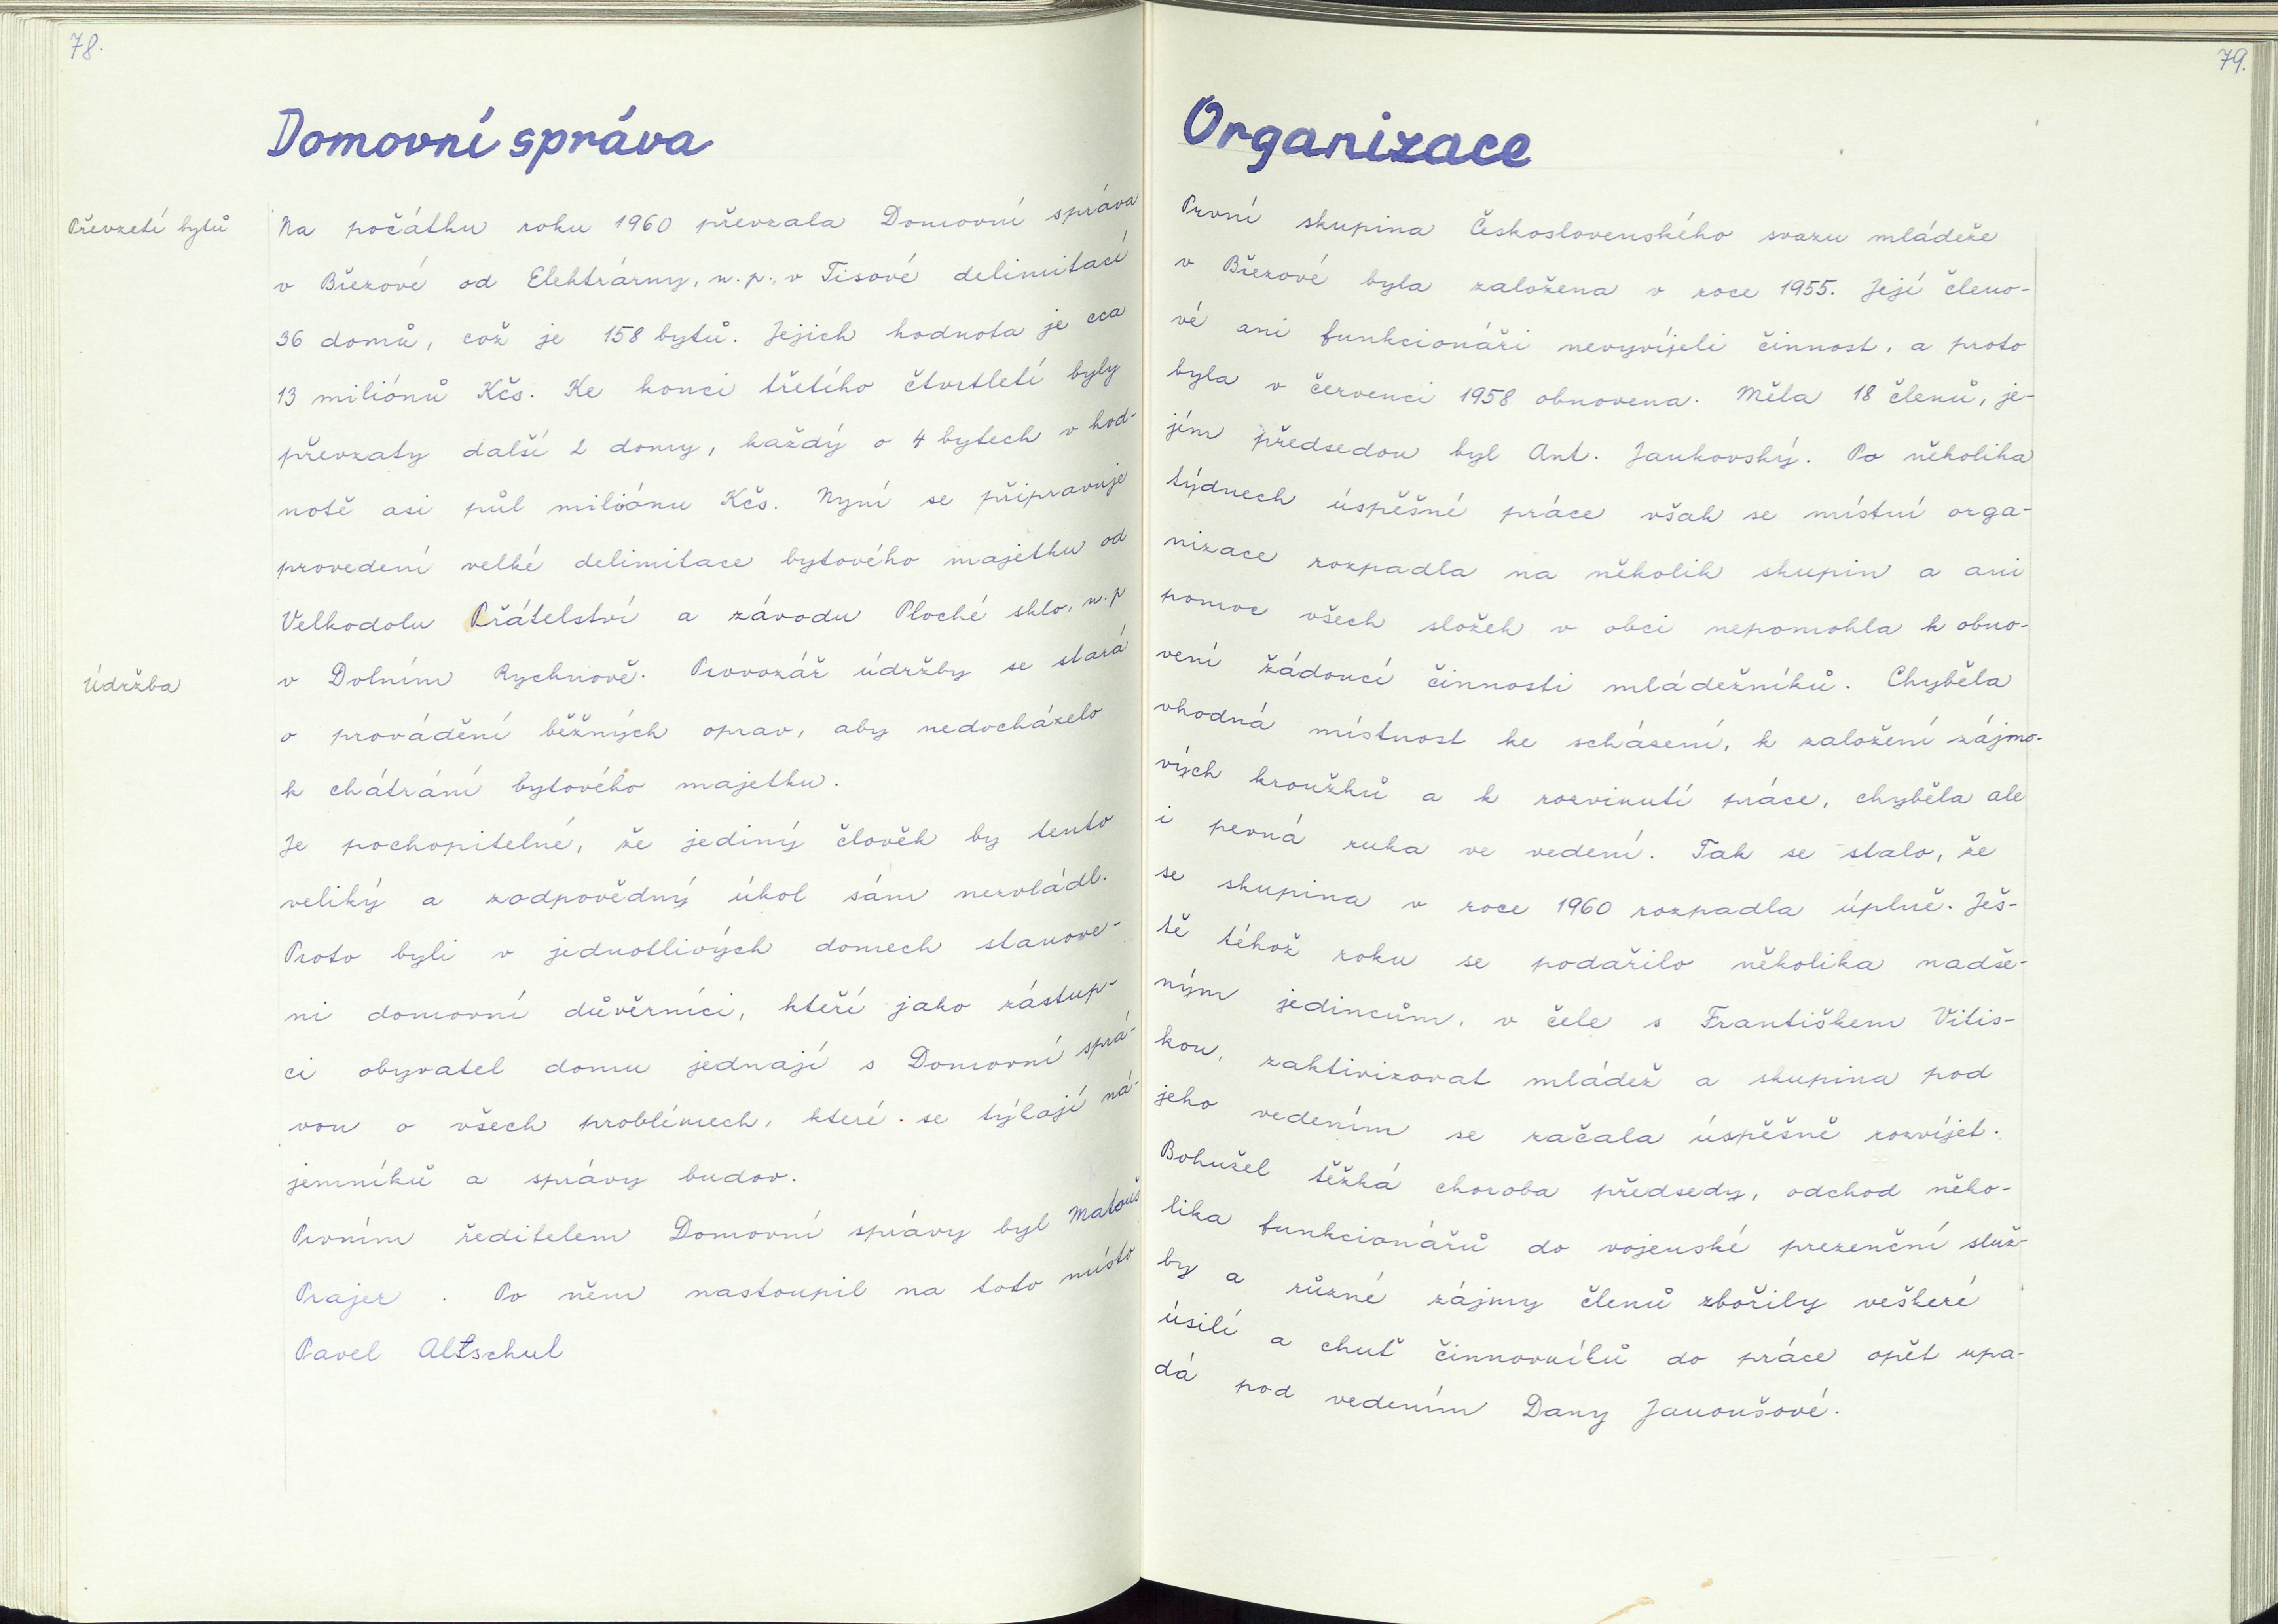 78.
Domovní správa
Převzetí bytů
Na počátku roku 1960 převzala Domovní správa
v Březové od Elektrárny, n. p., v Tisové delimitací
36 domů, což je 158 bytů. Jejich hodnota je cca
13 miliónů Kčs. Ke konci třetího čtvrtletí byly
převzaty další 2 domy, každý o 4 bytech v hod-
notě asi půl miliónu Kčs. Nyní se připravuje
provedení velké delimitace bytového majetku od
Velkodolu Přátelství a závodu Ploché sklo, n. p
Údržba
v Dolním Rychnově. Provozář údržby se stará
o provádění běžných oprav, aby nedocházelo
k chátrání bytového majetku.
Je pochopitelné, že jediný člověk by tento
veliký a zodpovědný úkol sám nezvládl.
Proto byli v jednotlivých domech stanove-
ni domovní důvěrníci, kteří jako zástup-
ci obyvatel domu jednají s Domovní sprá-
vou o všech problémech, které se týkají ná-
jemníků a správy budov.
Prvním ředitelem Domovní správy byl Matouš
Prajer . Po něm nastoupil na toto místo
Pavel Altschul
79.
Organizace
První skupina Československého svazu mládeže
v Březové byla založena v roce 1955. Její členo-
vé ani funkcionáři nevyvíjeli činnost, a proto
byla v červenci 1958 obnovena. Měla 18 členů, je-
jím předsedou byl Ant. Jankovský. Po několika
týdnech úspěšné práce však se místní orga-
nizace rozpadla na několik skupin a ani
pomoc všech složek v obci nepomohla k obno-
vení žádoucí činnosti mládežníků. Chyběla
vhodná místnost ke scházení, k založení zájmo-
vých kroužků a k rozvinutí práce, chyběla ale
i pevná ruka ve vedení. Tak se stalo, že
se skupina v roce 1960 rozpadla úplně. Ješ-
tě téhož roku se podařilo několika nadše-
ným jedincům, v čele s Františkem Vitis-
kou, zaktivizovat mládež a skupina pod
jeho vedením se začala úspěšně rozvíjet.
Bohužel těžká choroba předsedy, odchod něko-
lika funkcionářů do vojenské prezenční služ-
by a různé zájmy členů zbořily veškeré
úsilí a chuť činnovníků do práce opět upa-
dá pod vedením Dany Janoušové.